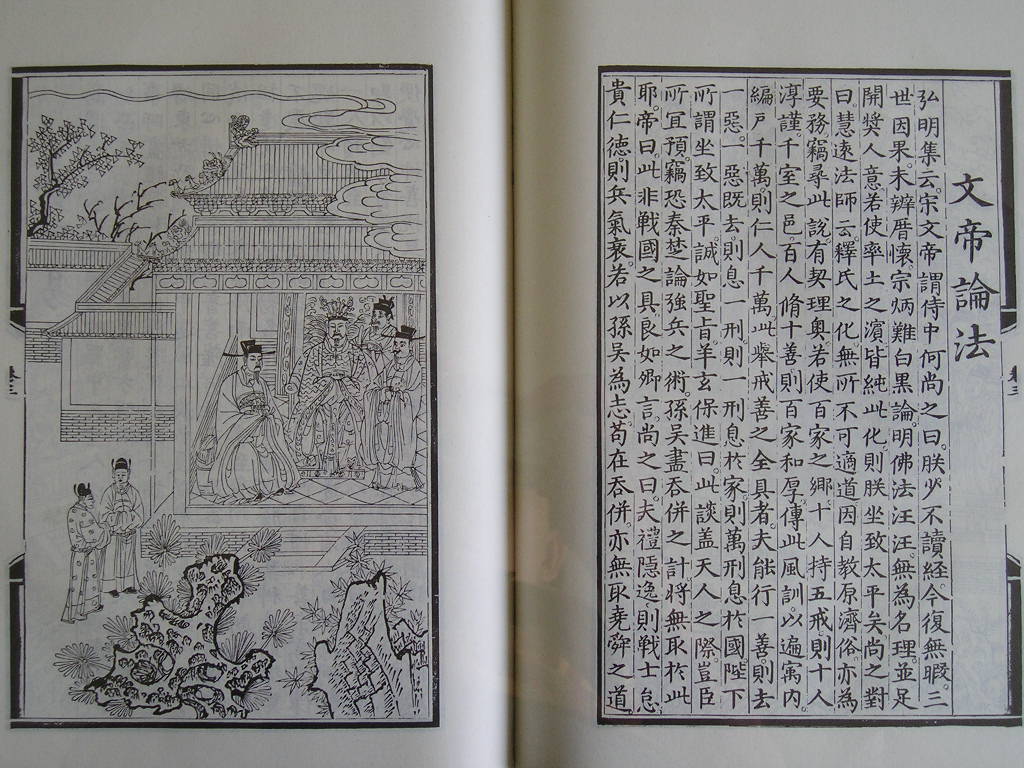 文帝論法
弘明集云。宋文帝謂侍中何尚之曰。朕少不讀經。今復無暇。三
世因果。未辨厝懷。宗炳難白黑論。明佛法汪汪。無為名理。並足
開獎人意。若使率土之濱。皆純此化。則朕坐致太平矣。尚之對
曰。慧遠法師云。釋氏之化。無所不可。適道因自教原。濟俗亦為
要務。竊尋此說。有契理奧。若使百家之鄉。十人持五戒。則十人
淳謹。千室之邑。百人脩十善。則百家和厚。傳此風訓。以遍寓內。
編戶千萬。則仁人千萬。此舉戒善之全具者。夫能行一善。則去
一惡。一惡既去。則息一刑。則一刑息於家。則萬刑息於國。陛下
所謂坐致太平。誠如聖旨。羊玄保進曰。此談蓋天人之際。豈臣
所宜預。竊恐秦楚論強兵之術。孫吳盡吞併之計。將無取於此
耶。帝曰。此非戰國之具。良如卿言。尚之曰。夫禮隱逸。則戰士怠。
貴仁德。則兵氣衰。若以孫吳為志。苟在吞併。亦無取堯舜之道。